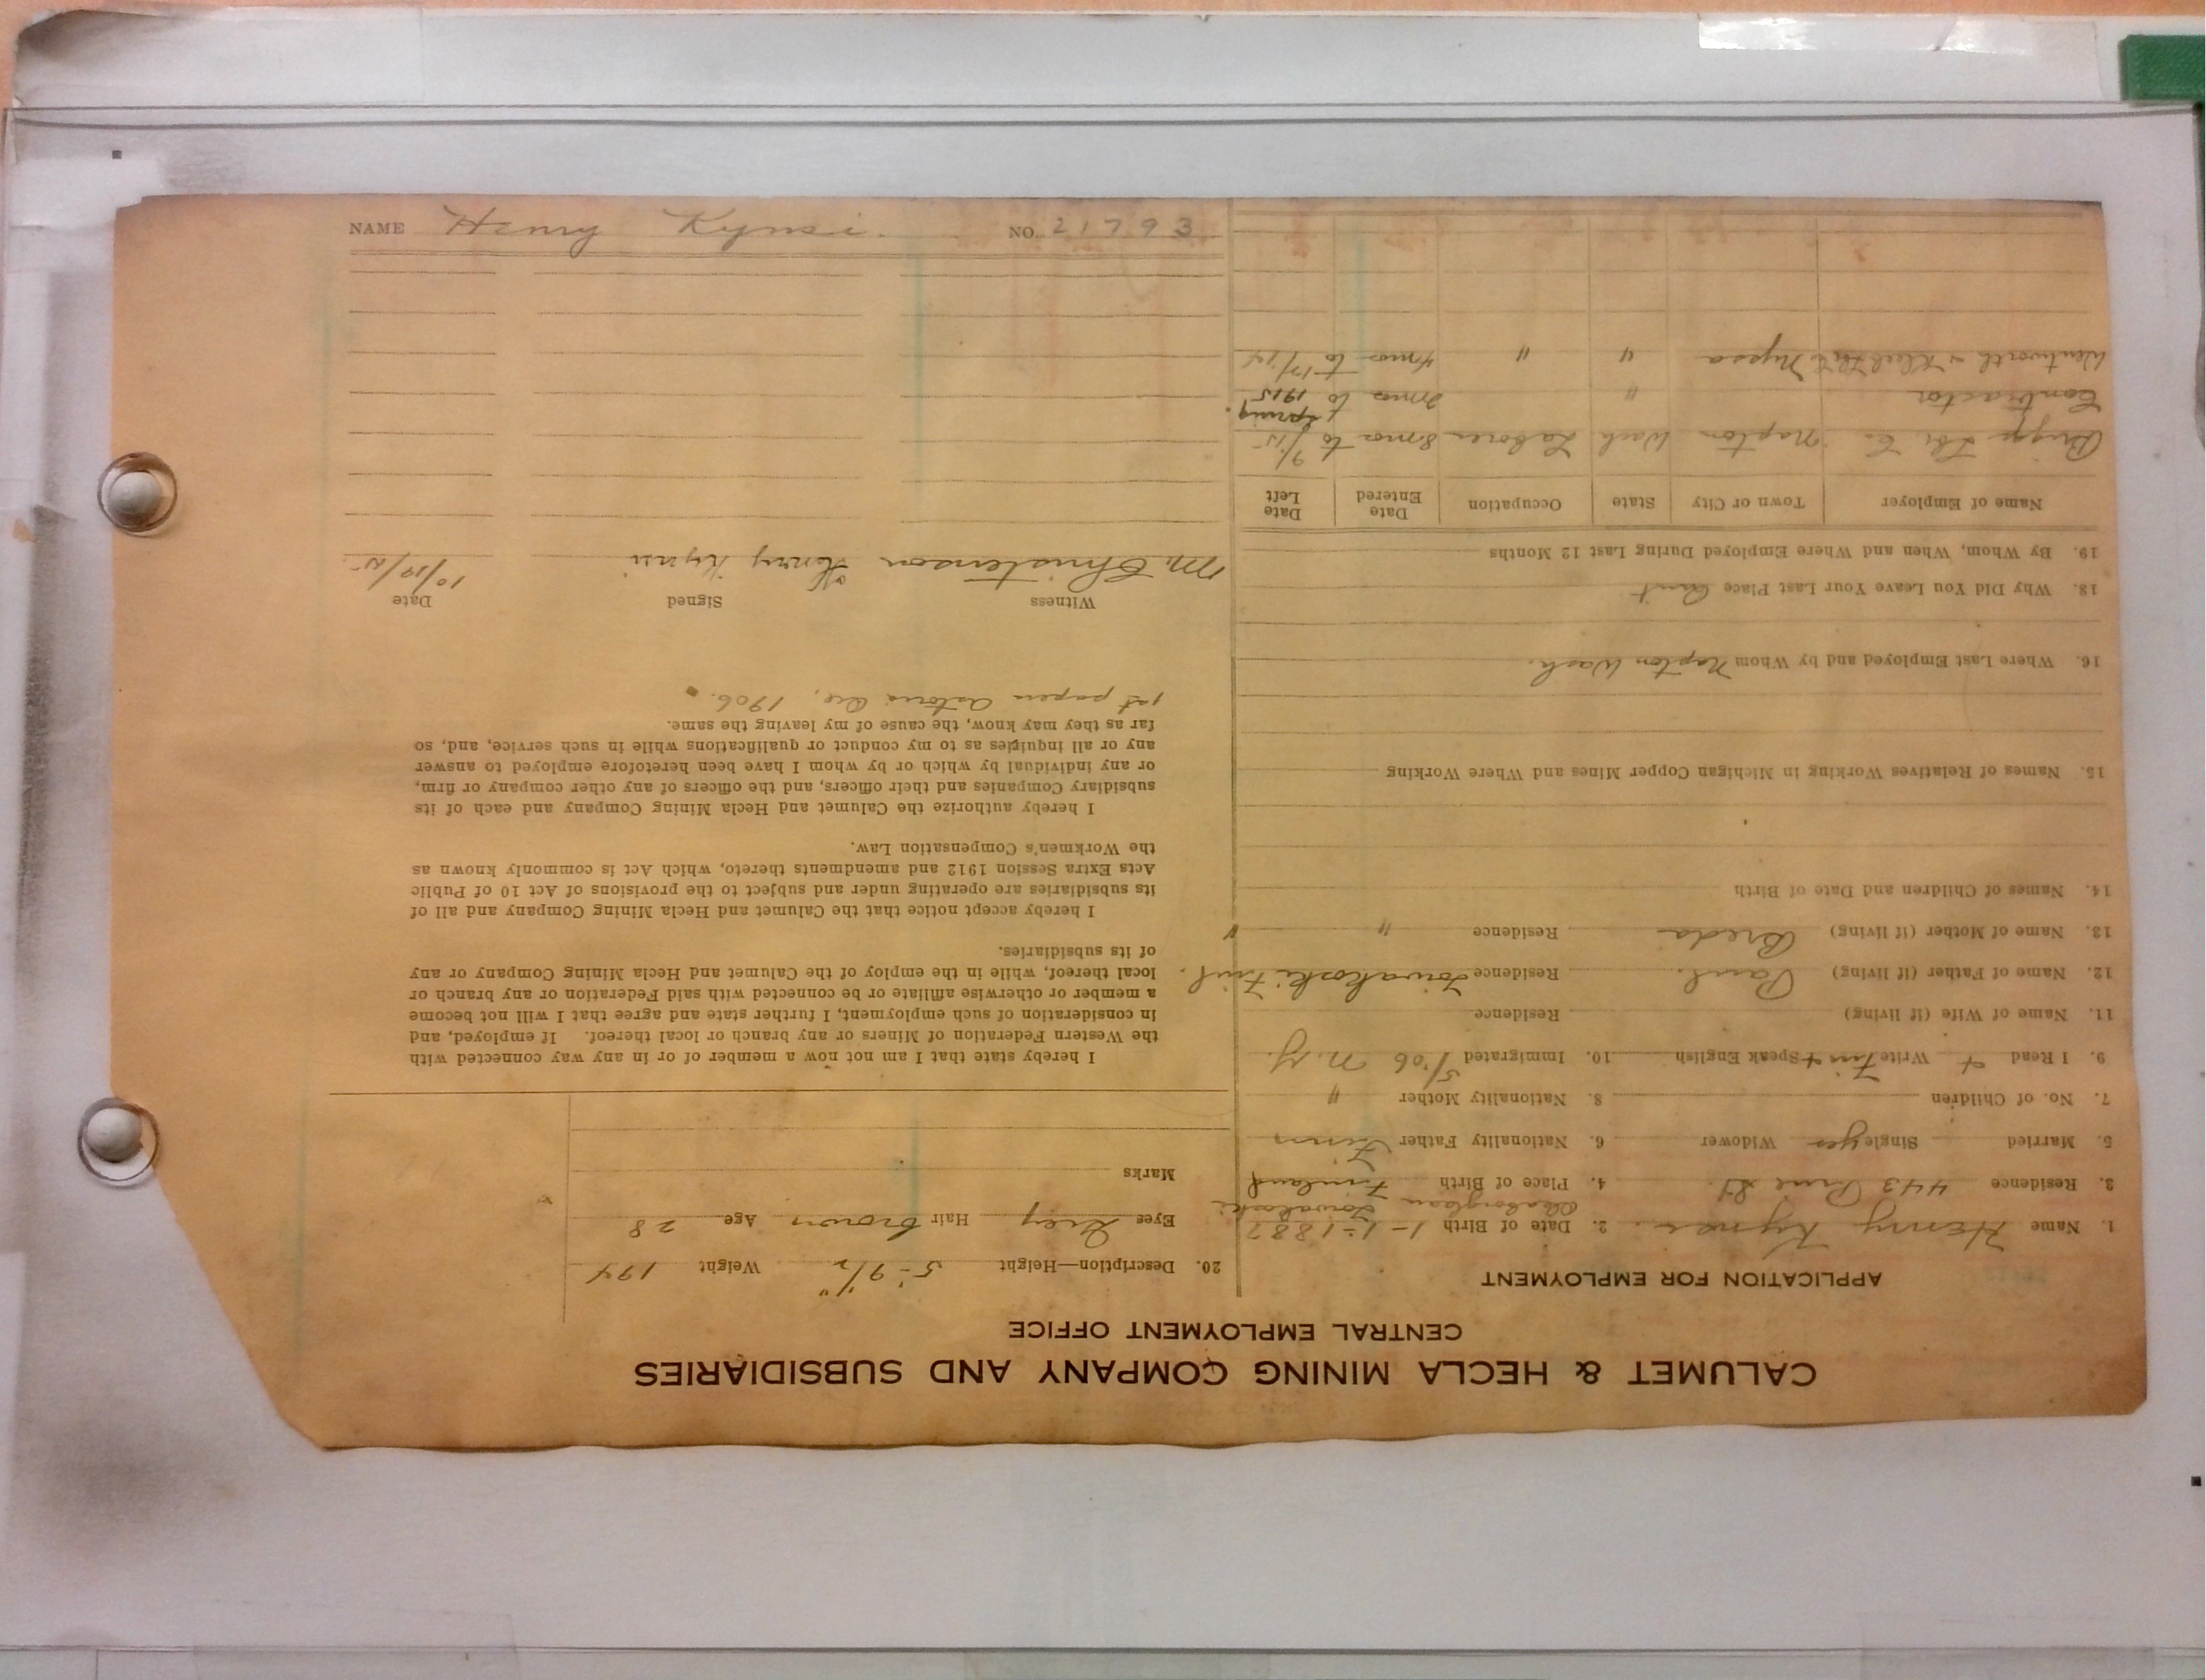 CALUMET & HECLA MINING COMPANY AND SUBSIDIARIES
CENTRAL EMPLOYMENT OFFICE
APPLICATION FOR EMPLOYMENT
1. Name Henry Kynsi. 2. Date of Birth 1-1-1887
3. Residence 443 Pine St. 4. Place of Birth Finland
5. Married Single yes Widower 6. Nationality Father Finn
7. No. of Children 8. Nationality Mother "
9. I Read + Write Finn + Speak English 10. Immigrated 5/06 N.Y.
11. Name of Wife (if living) Residence
12. Name of Father (if living) Paul. Residence Finl.
13. Name of Mother (if living) Breda Residence " "
14. Names of Children and Date of Birth
15. Names of Relatives Working in Michigan Copper Mines and Where Working
16. Where Last Employed and by Whom Napton Wash.
18. Why Did You Leave Your Last Place Quit
19. By Whom, When and Where Employed During Last 12 Months
Name of Employer Town or City State Occupation Date Entered Date Left
Napton Wash Laborer 8 mos to 9/15
Contractor " 2 mos to Spring 1915
Wentworth & Nyssa " " 4 mos to
20. Description—Height 5'-9 1/2" Weight 194
Eyes Grey Hair brown Age 28
Marks
I hereby state that I am not now a member of or in any way connected with
the Western Federation of Miners or any branch or local thereof. If employed, and
in consideration of such employment, I further state and agree that I will not become
a member or otherwise affiliate or be connected with said Federation or any branch or
local thereof, while in the employ of the Calumet and Hecla Mining Company or any
of its subsidiaries.
I hereby accept notice that the Calumet and Hecla Mining Company and all of
its subsidiaries are operating under and subject to the provisions of Act 10 of Public
Acts Extra Session 1912 and amendments thereto, which Act is commonly known as
the Workmen's Compensation Law.
I hereby authorize the Calumet and Hecla Mining Company and each of its
subsidiary Companies and their officers, and the officers of any other company or firm,
or any individual by which or by whom I have been heretofore employed to answer
any or all inquiries as to my conduct or qualifications while in such service, and, so
far as they may know, the cause of my leaving the same.
1st papers Astoria Ore, 1906.
Witness Signed Date
M. Christenson Henry Kynsi 10/19/15
NAME Henry Kynsi. NO. 21793